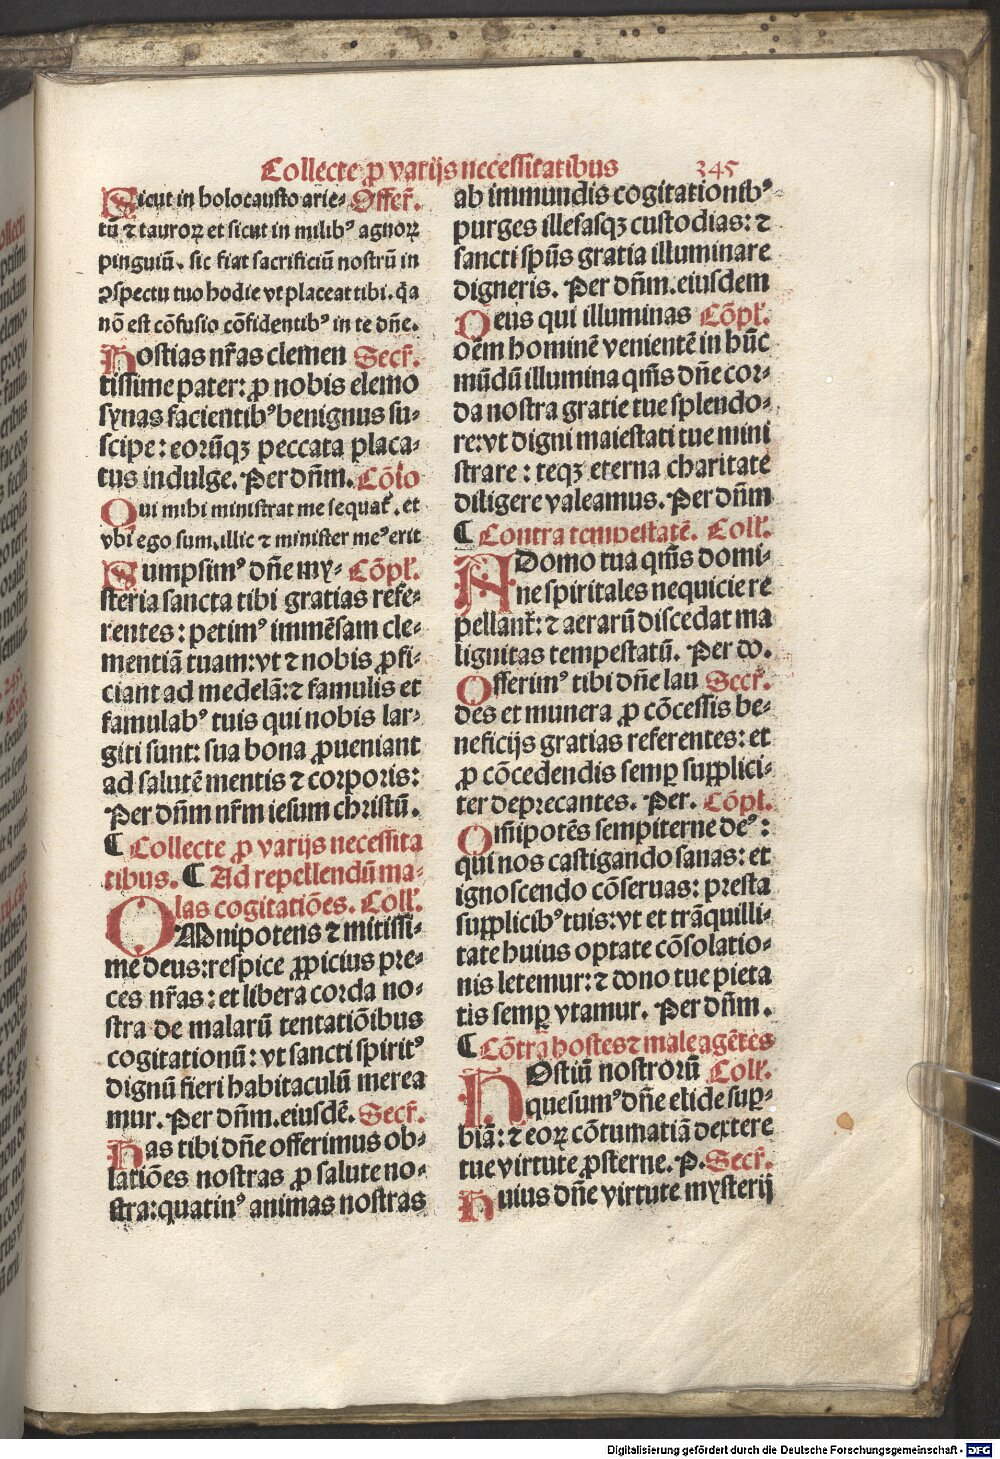 Collecte ꝑ varijs necessitatibus 245
Sicut in holocausto arie- Offer̄.
tū ⁊ tauroꝝ et sicut in milibꝰ agnoꝝ
pinguiū. sic fiat sacrificiū nostrū in
ꝯspectu tuo hodie vt placeat tibi. q̄a
nō est cōfusio cōfidentibꝰ in te dn̄e.
Hostias nr̄as clemen Secr̄.
tissime pater: ꝓ nobis elemo
synas facientibꝰ benignus su-
scipe: eorūqꝫ peccata placa-
tus indulge. Per dn̄m. Cōĩo
Qui mihi ministrat me sequat᷑. et
vbi ego sum. illic ⁊ minister meꝰ erit
Sumpsimꝰ dn̄e my- Cōpl̄.
steria sancta tibi gratias refe-
rentes: petimꝰ immēsam cle-
mentiā tuam: vt ⁊ nobis ꝓfi-
ciant ad medelā: ⁊ famulis et
famulabꝰ tuis qui nobis lar-
giti sunt: sua bona ꝓueniant
ad salutē mentis ⁊ corporis:
Per dn̄m nr̄m iesum christū.
¶ Collecte ꝑ varijs necessita
tibus. ¶ Ad repellendū ma-
las cogitatiōes. Coll̄.
OMnipotens ⁊ mitissi-
me deus: respice ꝓpicius pre-
ces nr̄as: et libera corda no-
stra de malarū tentatiōibus
cogitationū: vt sancti spiritꝰ
dignū fieri habitaculū merea
mur. Per dn̄m. eiusdē. Secr̄.
Has tibi dn̄e offerimus ob-
latiōes nostras ꝓ salute no-
stra: quatinꝰ animas nostras
ab immundis cogitationibꝰ
purges illesasqꝫ custodias: ⁊
sancti sp̄us gratia illuminare
digneris. Per dn̄m. eiusdem
Deus qui illuminas Cōpl̄.
oēm hominē venientē in hūc
mūdū illumina qm̄s dn̄e cor-
da nostra gratie tue splendo-
re: vt digni maiestati tue mini
strare: teqꝫ eterna charitate
diligere valeamus. Per dn̄m
¶ Contra tempestatē. Coll̄.
ADomo tua qm̄s domi-
ne spiritales nequicie re
pellant᷑: ⁊ aerarū discedat ma
lignitas tempestatū. Per do.
Offerimꝰ tibi dn̄e lau Secr̄.
des et munera ꝓ cōcessis be-
neficijs gratias referentes: et
ꝓ cōcedendis semꝑ supplici-
ter deprecantes. Per. Cōpl̄.
Om̄ipotēs sempiterne deꝰ:
qui nos castigando sanas: et
ignoscendo cōseruas: presta
supplicibꝰ tuis: vt et trāquilli-
tate huius optate cōsolatio-
nis letemur: ⁊ dono tue pieta
tis semꝑ vtamur. Per dn̄m.
¶ Cōtra hostes ⁊ male agētes
HOstiū nostrorū Coll̄.
quesumꝰ dn̄e elide suꝑ-
biā: ⁊ eoꝝ cōtumatiā dextere
tue virtute ꝓsterne. P. Secr̄.
Huius dn̄e virtute mysterij
Digitalisierung gefördert durch die Deutsche Forschungsgemeinschaft - DFG